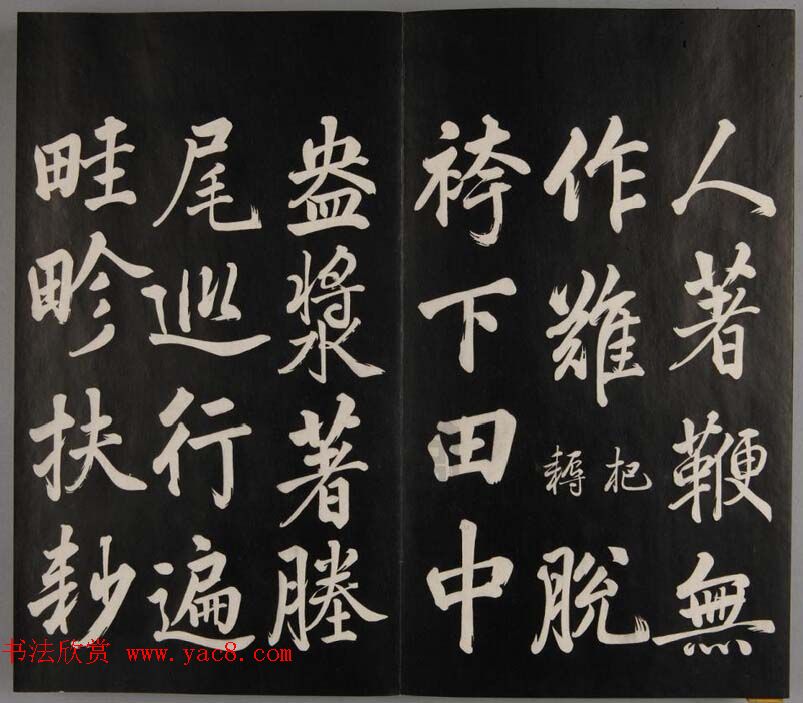 人著鞭無
作難杷耨脫
袴下田中
盎漿著塍
尾巡行遍
畦畛扶耖
书法欣赏 www.yac8.com